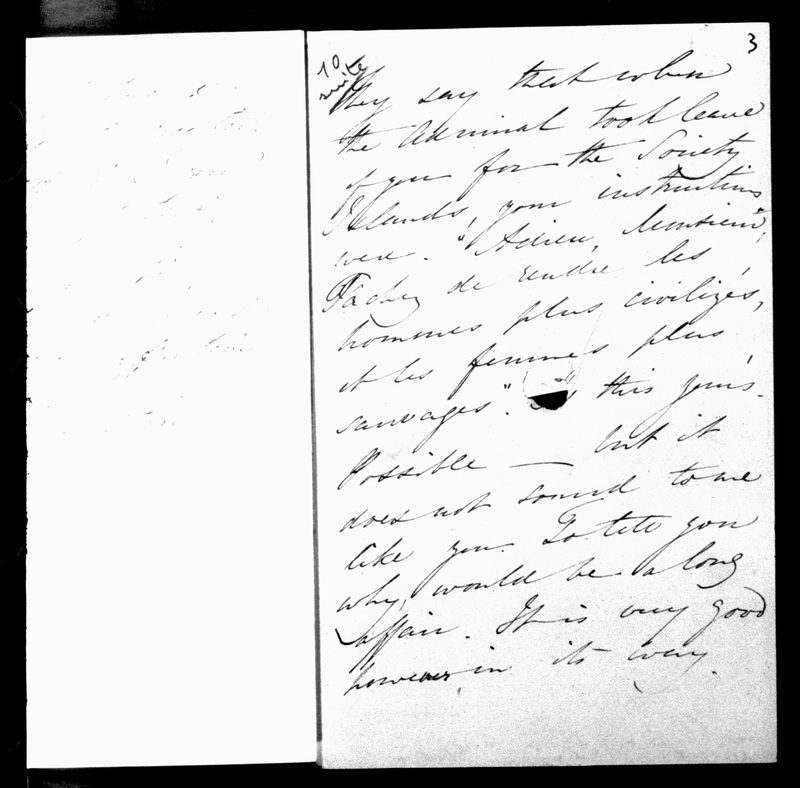 3
10
suite
They say that when
the Admiral took leave
of you for the Society
Islands, your instructions
were. "Adieu, Monsieur,
Tachez de rendre les
hommes plus civilizés,
et les femmes plus
sauvages". this yours.
Possible — but it
does not sound to me
like you. To tell you
why, would be a long
affair. It is very good
however in its way.